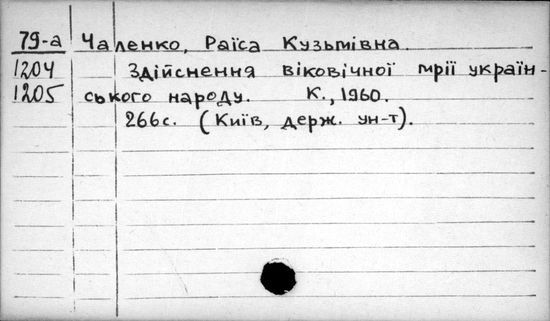 79-а Чаленко, Раїса Кузьмівна.
1204 Здійснення віковічної мрії україн-
1205 ського народу. К., 1960.
266с. (Київ, держ. ун-т).